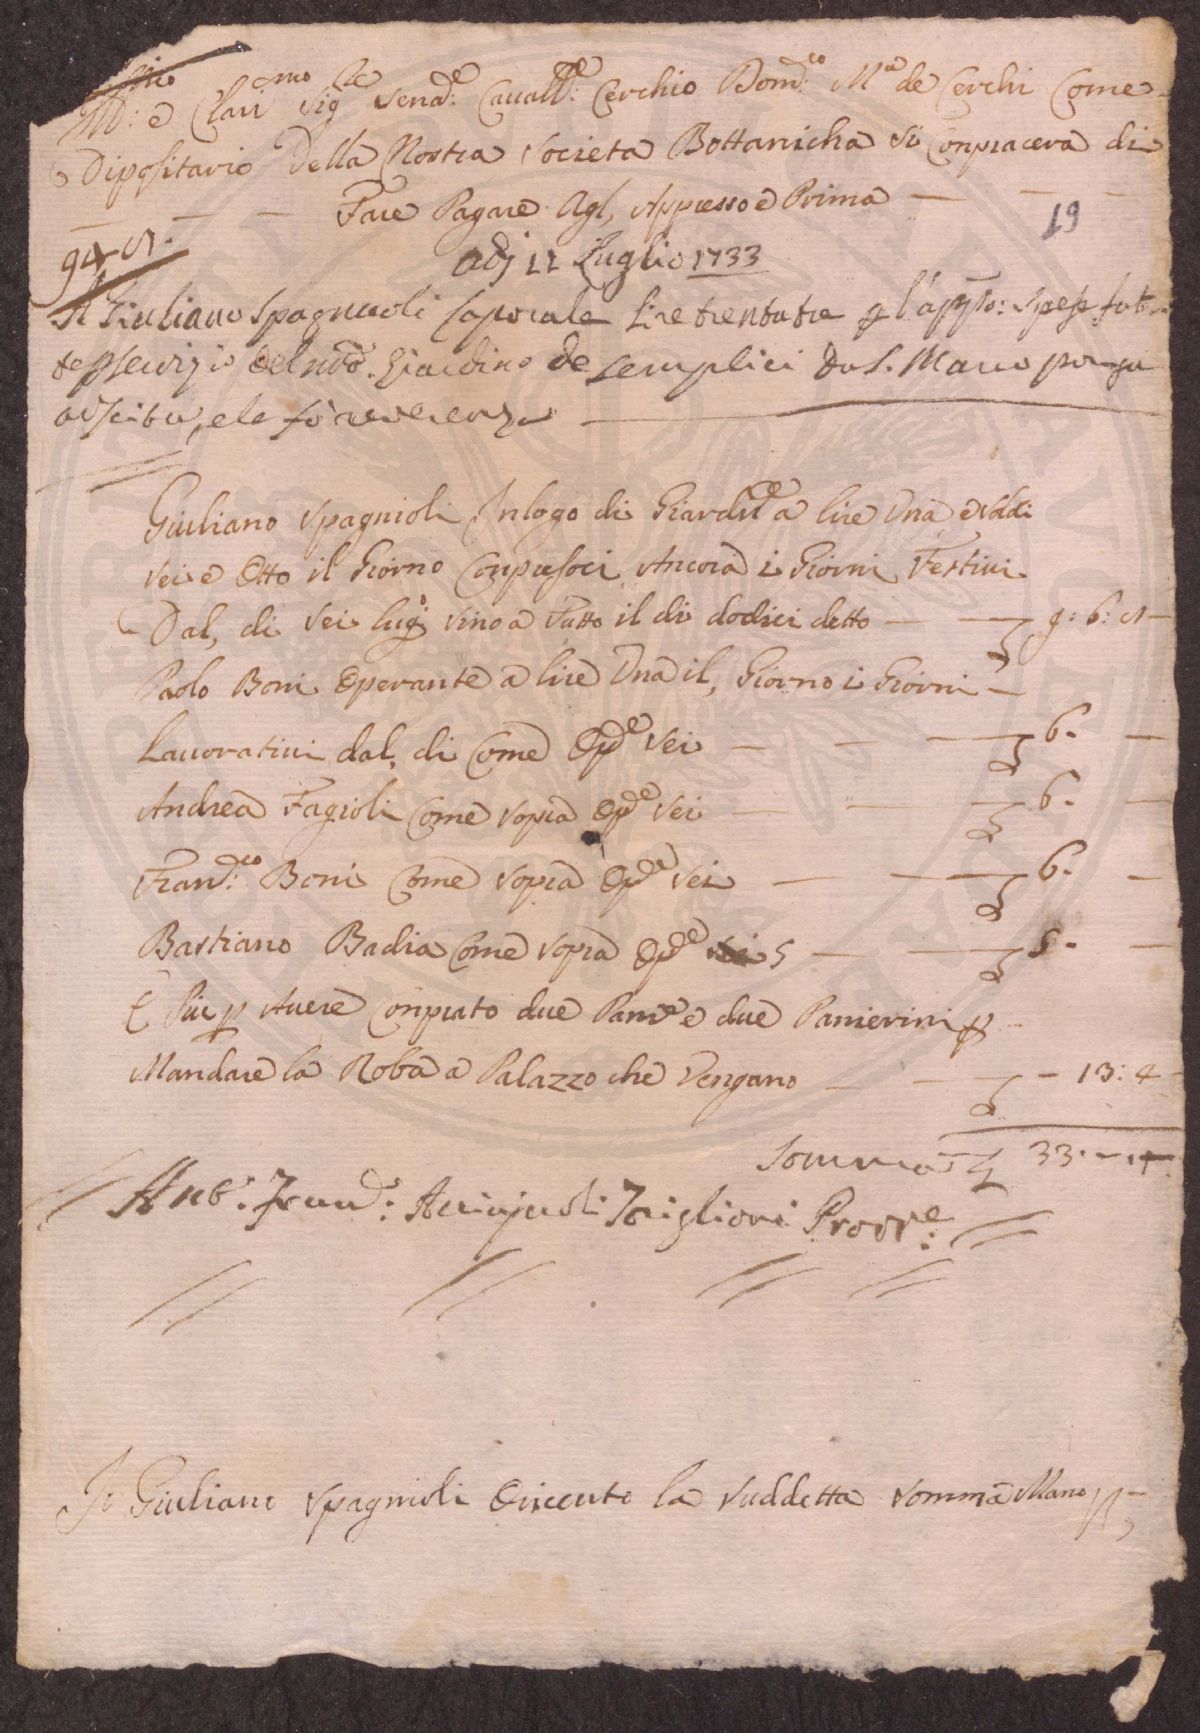 Ill.mo e Clar.mo Sig.re Senat.e Cavall.e Cerchio Dom.co M.a de Cerchi Come
Dipositario Della Nostra Societa Bottanicha si Conpiacera di
Fare Pagare Agl, Appresso e Prima
19
94
adj 12 Luglio 1733
A Giuliano Spagnuoli Caporale Lire trentatre p l'app.to: spese fat
te p servizio del nro. Giardino de semplici da S. Marco ponga
a uscita, e le fo reverenza
Giuliano Spagnioli Inlogo di Giard.re a lire Una e soldi
sei e Otto il Giorno Conpresoci Ancora i Giorni Festivi
Dal, di sei lug.o sino a Tutto il di dodici detto 9: 6: 8
Paolo Boni Operante a lire Una il, Giorno i Giorni
Lavorativi dal, di Come Op.e sei 6.
Andrea Fagioli Come sopra Op.e sei 6.
Fran.co Boni Come sopra Op.e sei 6.
Bastiano Badia Come sopra Op.e sei 5 5.
E Piu p Avere Conprato due Panie e due Panierini p
Mandare la Roba a Palazzo che Vengano 13: 4
Somma 33
Ant. Franc.: Acciajuoli Toriglioni Provv.e
Io Giuliano Spagnioli O riceuto la Suddetta Somma Mano pp